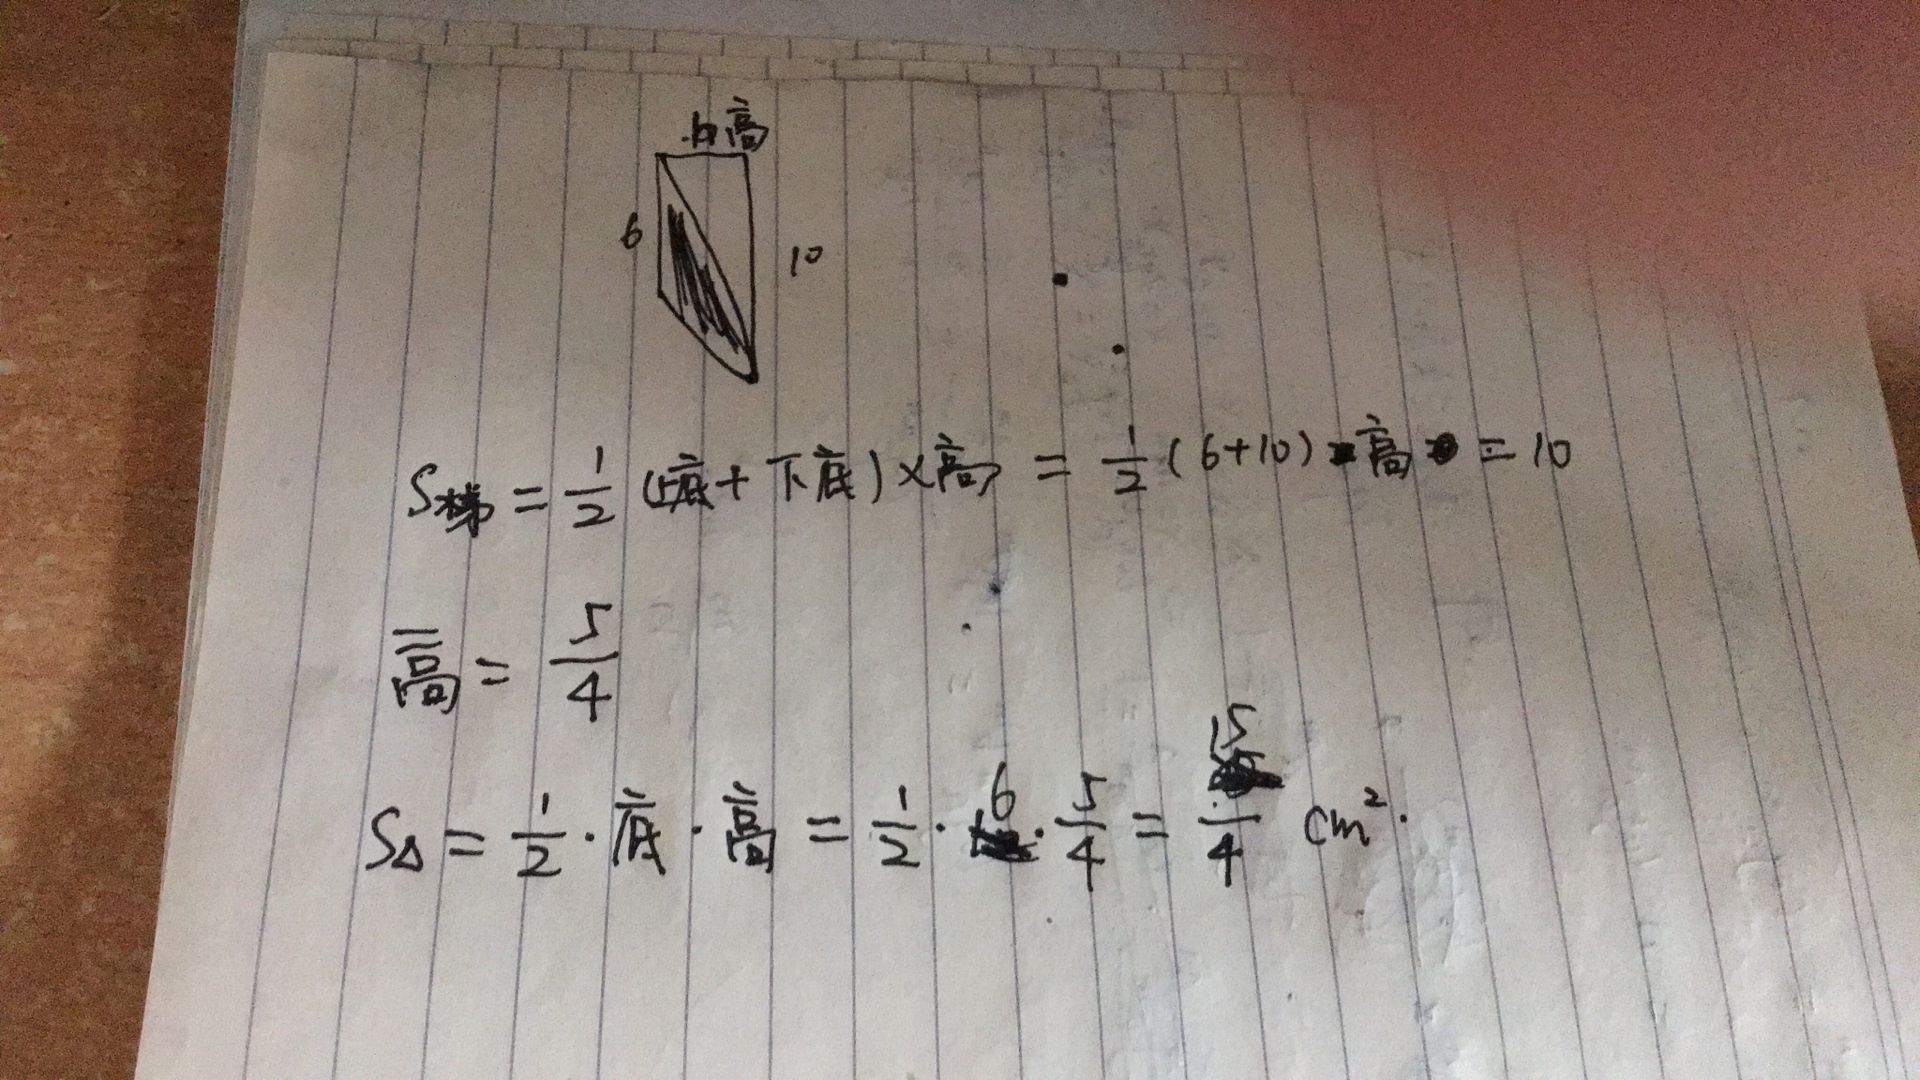 h高
6
10
S梯 = 1/2 (上底 + 下底) × 高 = 1/2 (6+10) 高 = 10
高 = 5/4
S△ = 1/2 · 底 · 高 = 1/2 · 6 · 5/4 = 15/4 cm².